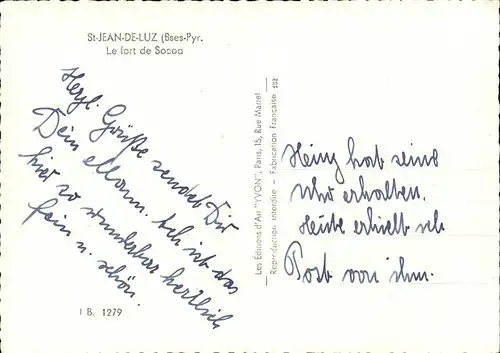 St-JEAN-DE-LUZ (Bses-Pyr.
Le fort de Socoa
Herzl. Grüße sendet Dir
Dein Ach ist das
hier so wunderbar herrlich
fein u. schön.
I B. 1279
Les Editions d'Art "YVON", Paris, 15, Rue Martel
Reproduction interdite - Fabrication Française
Heinz hat seine
Uhr erhalten.
Heute erhielt ich
Post von ihm.